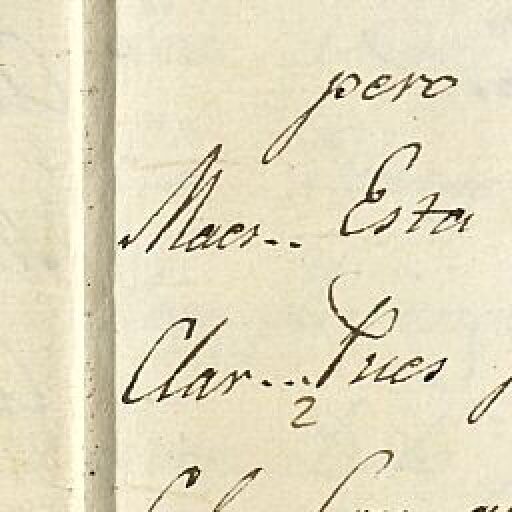 pero
Maes.. Esta
Clar... Pues
2